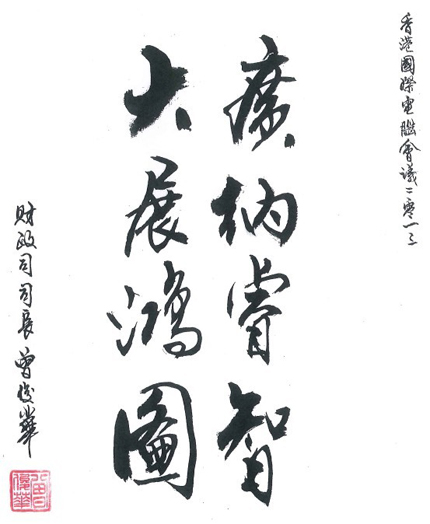 香港國際電腦會議二零一三
廣納睿智
大展鴻圖
財政司司長曾俊華